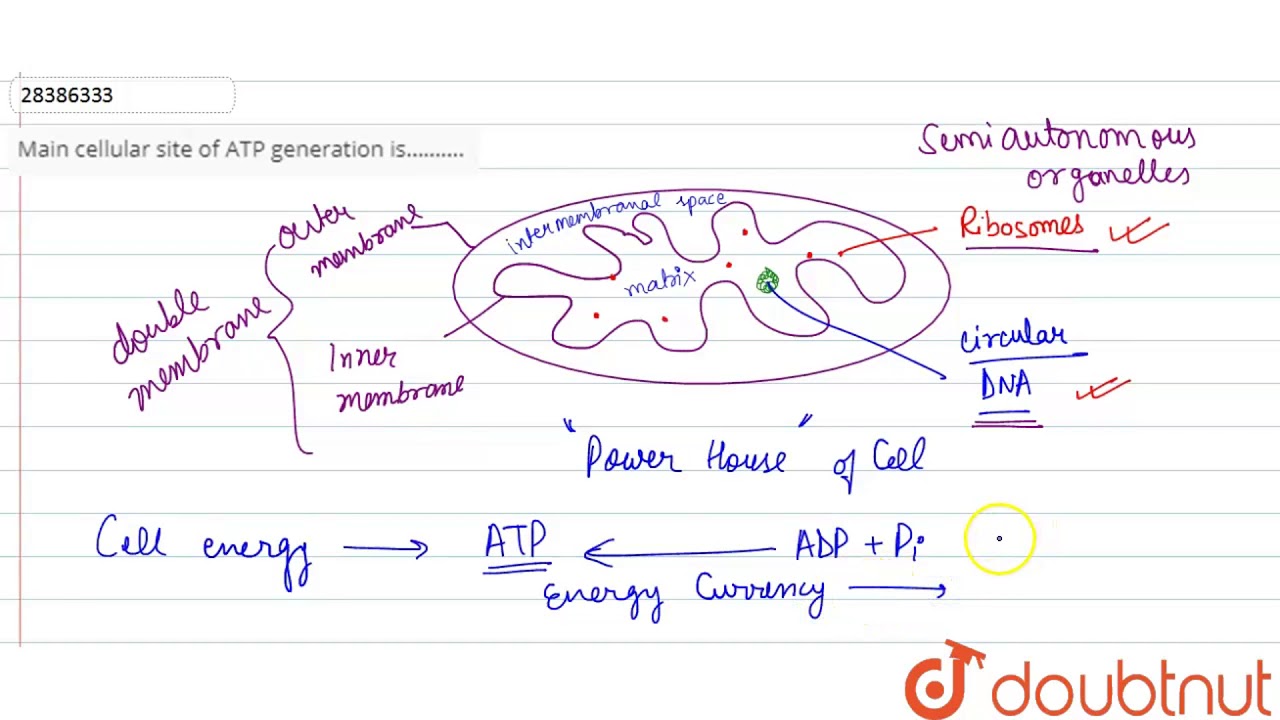 28386333
Main cellular site of ATP generation is..........
Semiautonomous
organelles
outer
membrane
intermembranal space
Ribosomes
matrix
double
membrane
Inner
membrane
circular
DNA
"Power House" of Cell
Cell energy → ATP ← ADP + Pi
Energy Currency →
doubtnut